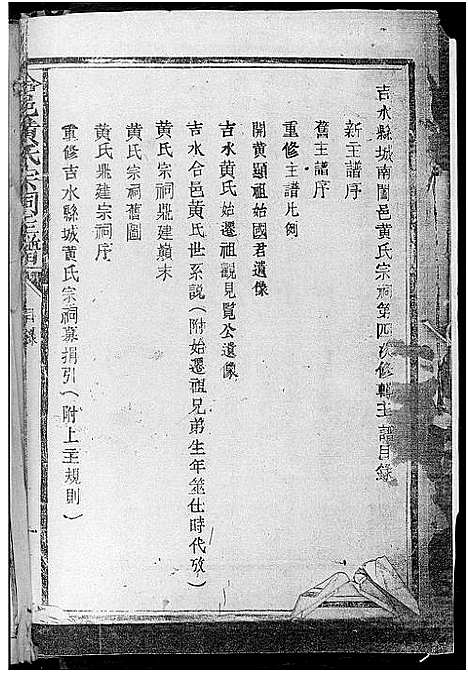 吉水縣城南闔邑黄氏宗祠第四次修輯主譜目錄
新主譜序
舊主譜序
重修主譜凡例
開黄顯祖始國君遺像
吉水黄氏始遷祖觀見覧公遺像
吉水合邑黄氏世系説(附始遷祖兄弟生年筮仕時代攷)
黄氏宗祠鼎建巔末
黄氏宗祠舊圖
黄氏鼎建宗祠序
重修吉水縣城黄氏宗祠募捐引(附上主規則)
合邑黄氏宗祠主譜
目錄